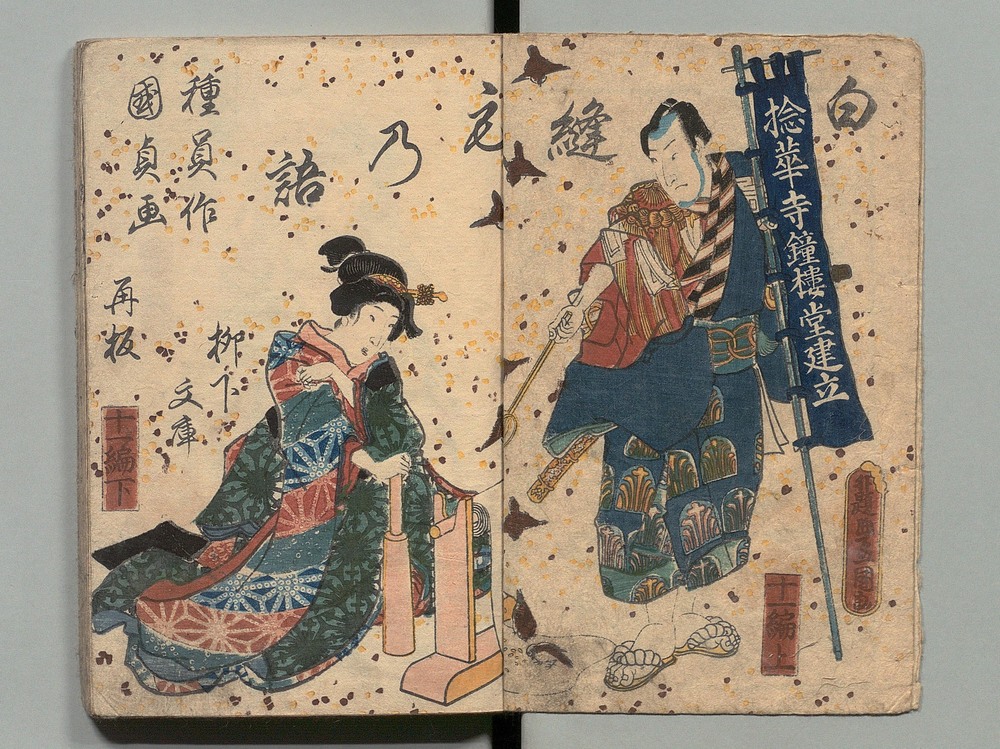 白
縫
捻華寺鐘樓堂建立
十一編上
乃
語
種員作
國貞画
再板
柳下
文庫
十一編下